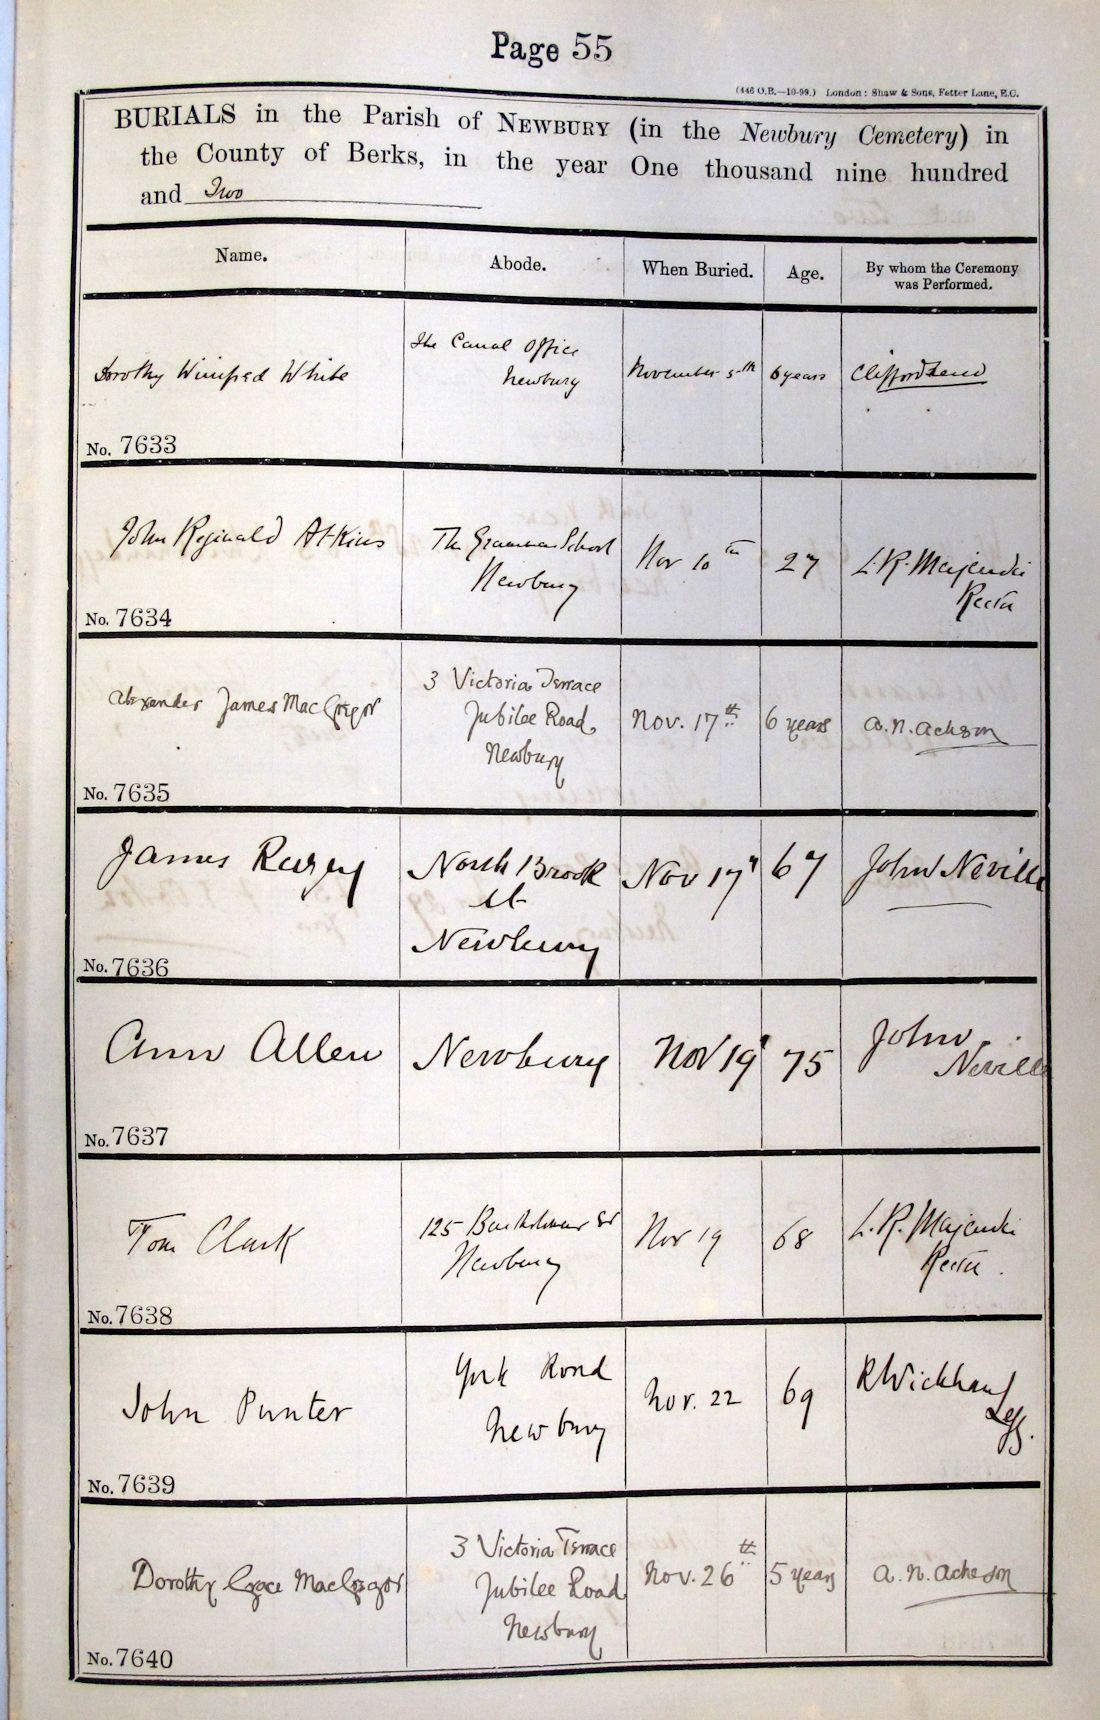 Page 55
(446 O.B.—10-99.) London: Shaw & Sons, Fetter Lane, E.C.
BURIALS in the Parish of NEWBURY (in the Newbury Cemetery) in
the County of Berks, in the year One thousand nine hundred
and Two
Name. Abode. When Buried. Age. By whom the Ceremony
was Performed.
The Canal Office
Dorothy Winifred White Newbury November 5th 6 years
No. 7633
John Reginald Atkins The Grammar School Nov 10th 27 L.R. Majendie
Newbury Rector
No. 7634
3 Victoria Terrace
Alexander James MacGregor Jubilee Road, Nov. 17th 6 years A.N. Acheson
Newbury
No. 7635
James North Brook Nov 17 67 John Neville
St
Newbury
No. 7636
Ann Allen Newbury Nov 19 75 John
Neville
No. 7637
Tom Clark 125 Bartholomew St Nov 19 68 L.R. Majendie
Newbury Rector.
No. 7638
John Punter York Road Nov. 22 69 R Wickham
Newbury Legg.
No. 7639
3 Victoria Terrace
Dorothy Grace MacGregor Jubilee Road Nov. 26th 5 years A.N. Acheson
Newbury
No. 7640